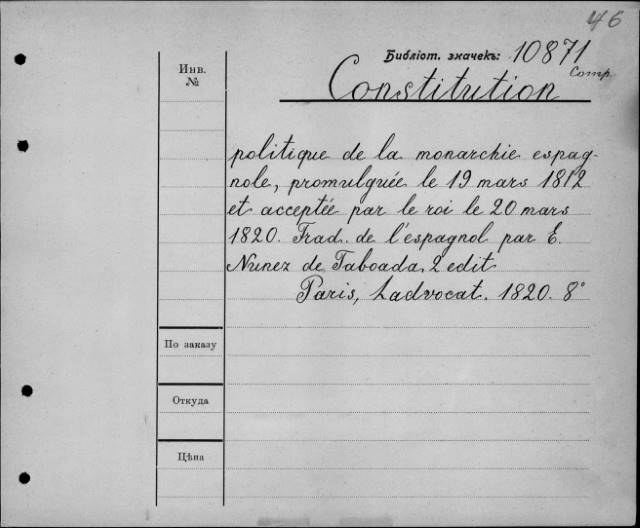 46
Библіот. значекъ: 10871
Comp.
Инв.
№
Constitution
politique de la monarchie espag-
nole, promulguée le 19 mars 1812
et acceptée par le roi le 20 mars
1820. Trad. de l'espagnol par E.
Nunez de Taboada. 2 edit
Paris, Ladvocat. 1820. 8°
По заказу
Откуда
Цѣна